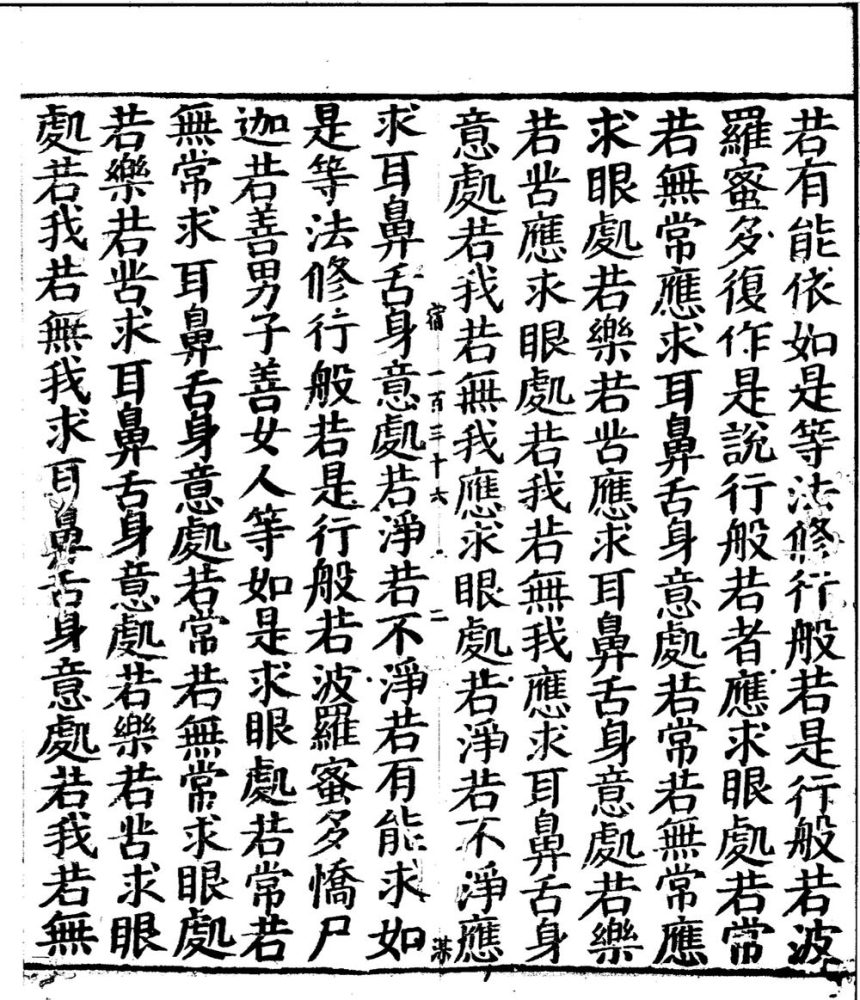 若有能依如是等法修行般若是行般若波
羅蜜多復作是說行般若者應求眼處若常
若無常應求耳鼻舌身意處若常若無常應
求眼處若樂若苦應求耳鼻舌身意處若樂
若苦應求眼處若我若無我應求耳鼻舌身
意處若我若無我應求眼處若淨若不淨應
宿 一百三十六 二
求耳鼻舌身意處若淨若不淨若有能求如
是等法修行般若是行般若波羅蜜多憍尸
迦若善男子善女人等如是求眼處若常若
無常求耳鼻舌身意處若常若無常求眼處
若樂若苦求耳鼻舌身意處若樂若苦求眼
處若我若無我求耳鼻舌身意處若我若無